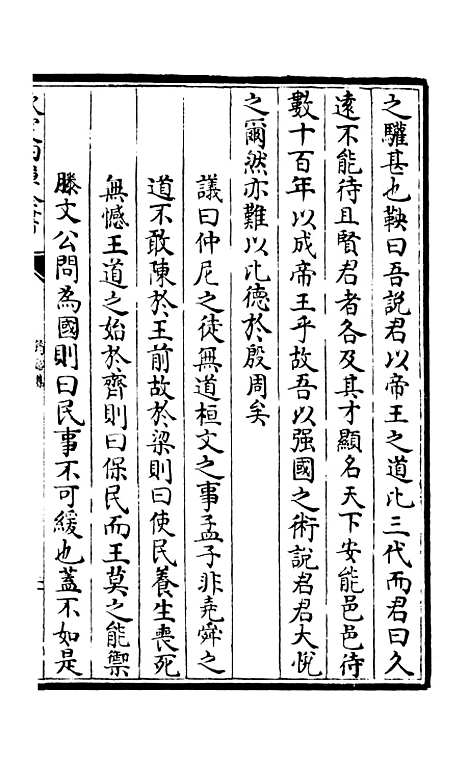 之驩甚也鞅曰吾說君以帝王之道比三代而君曰久
遠不能待且賢君者各及其才顯名天下安能邑邑待
數十百年以成帝王乎故吾以强國之術說君君大悅
之爾然亦難以比德於殷周矣
議曰仲尼之徒無道桓文之事孟子非堯舜之
道不敢陳於王前故於梁則曰使民養生喪死
無憾王道之始於齊則曰保民而王莫之能禦
滕文公問為國則曰民事不可緩也蓋不如是